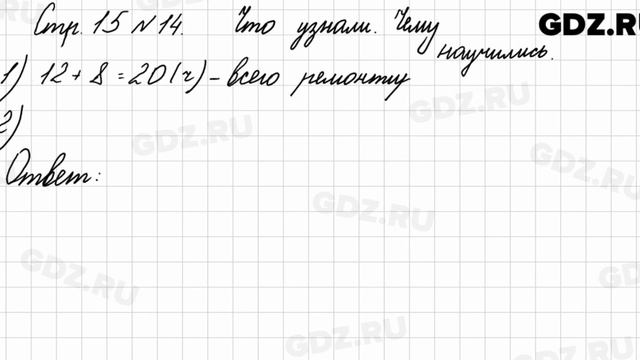 GDZ.RU
Стр. 15 № 14. Что узнали. Чему
научились.
1) 12 + 8 = 20 (ч) - всего ремонту
2)
Ответ:
GDZ.RU
GDZ.RU
GDZ.RU
GDZ.RU
GDZ.RU
GDZ.RU
GDZ.RU